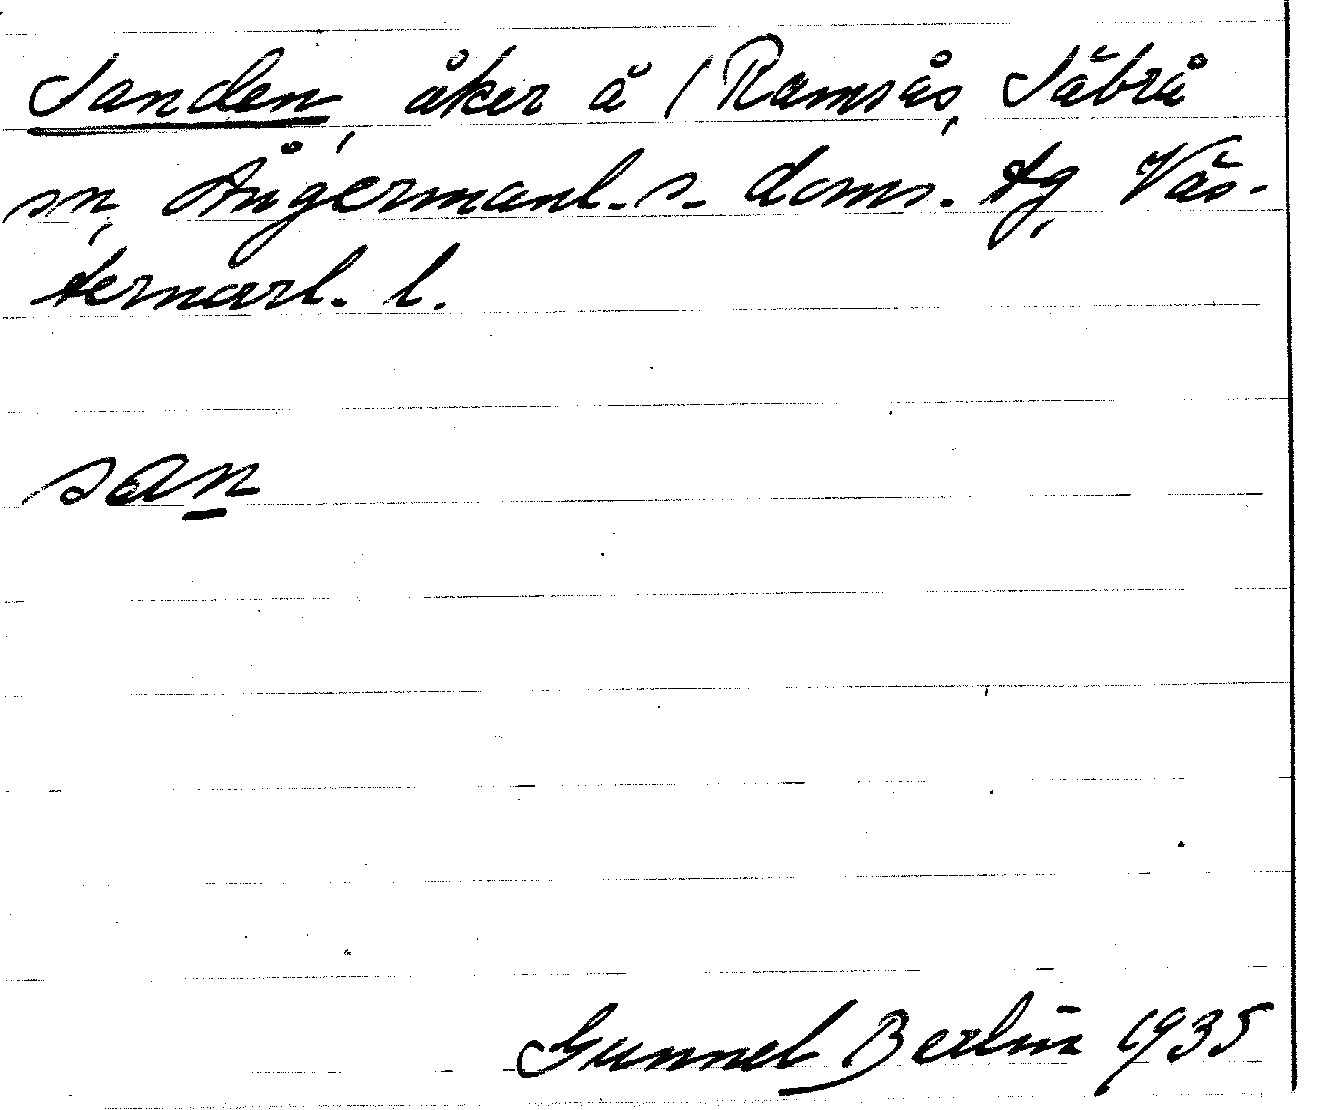 Sanden, åker å 1 Ramsås, Säbrå
sn, Ångermanl. s. doms. tg, Väs-
ternorrl. l.
san
Gunnel Berlin 1935